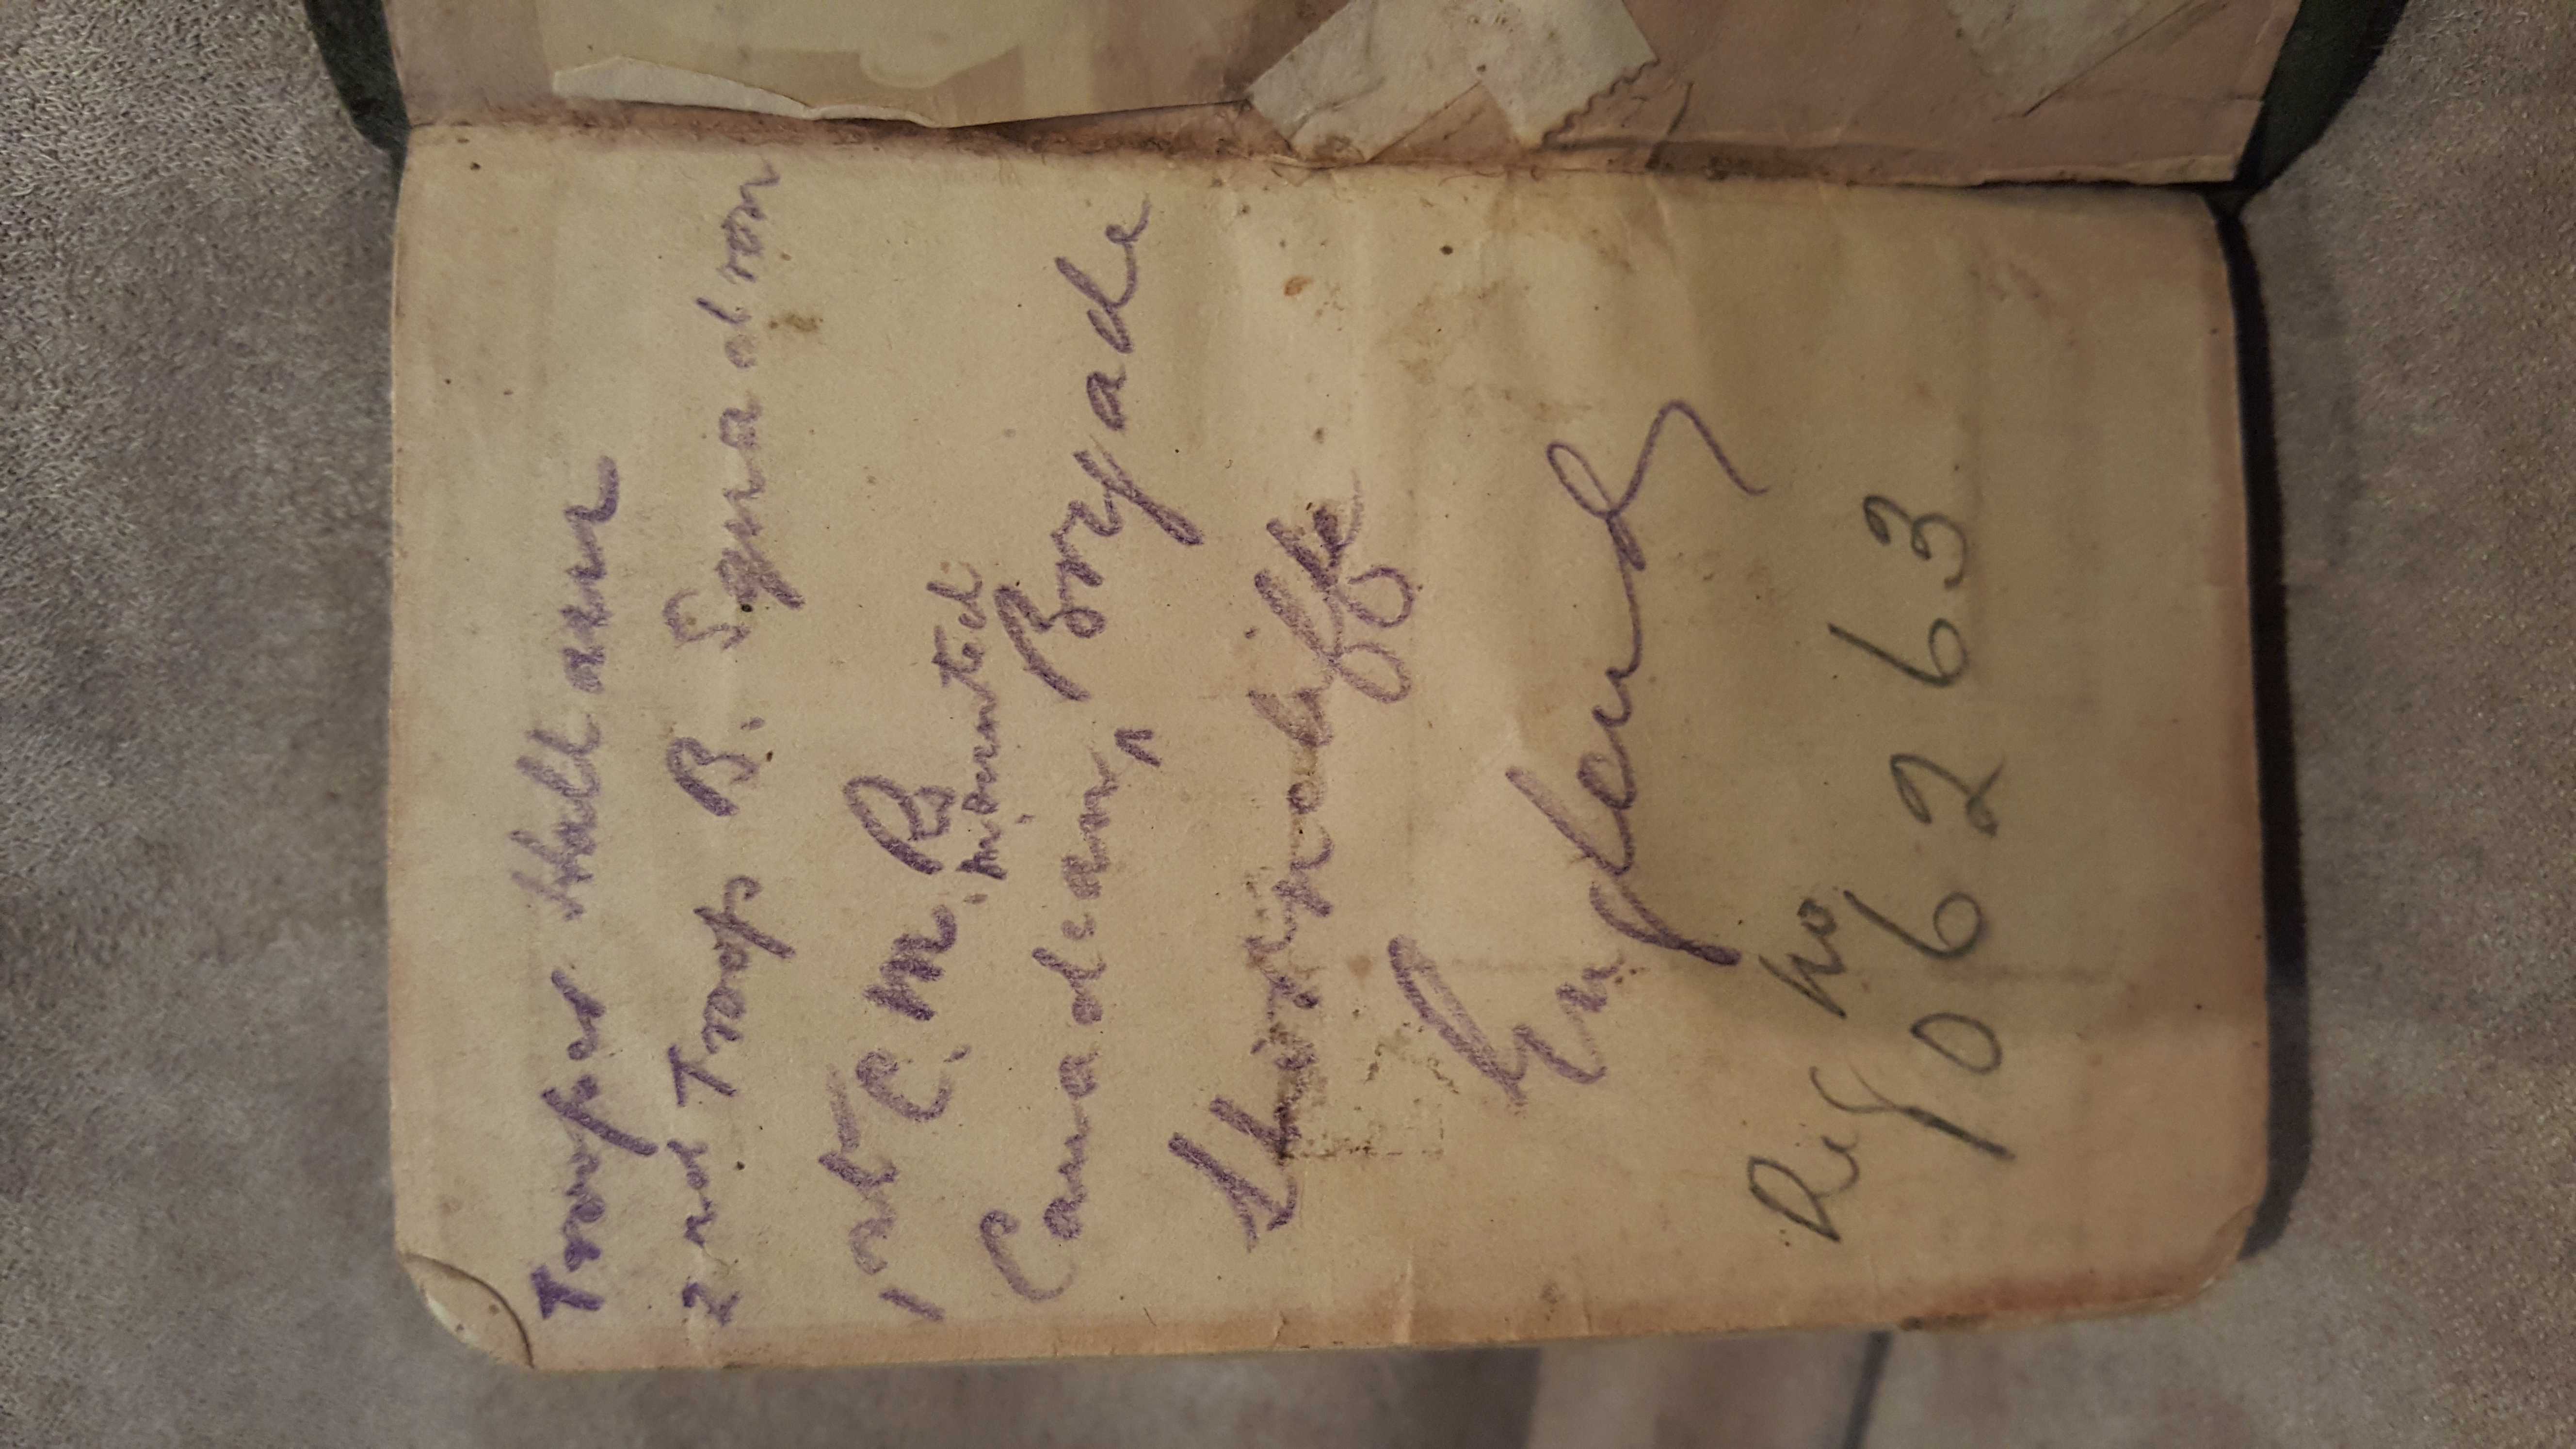 Trooper Hallam
2nd Troop B. Squadron
1rst C. M. R
mounted
Canadian, ^ Brigade
Shorncliffe
England
Reg No
106263